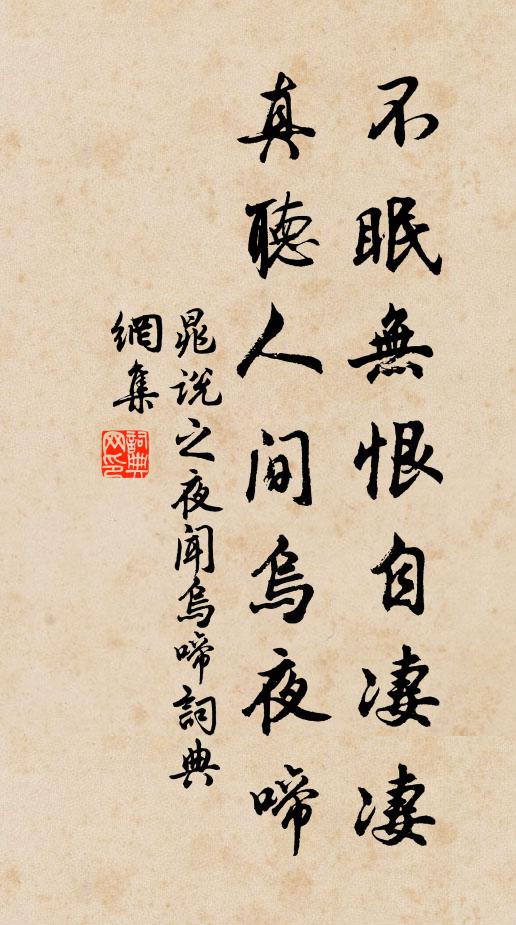 不眠無恨自淒淒
真聽人間烏夜啼
晁说之夜闻烏啼詞典
網集
詞典
网印